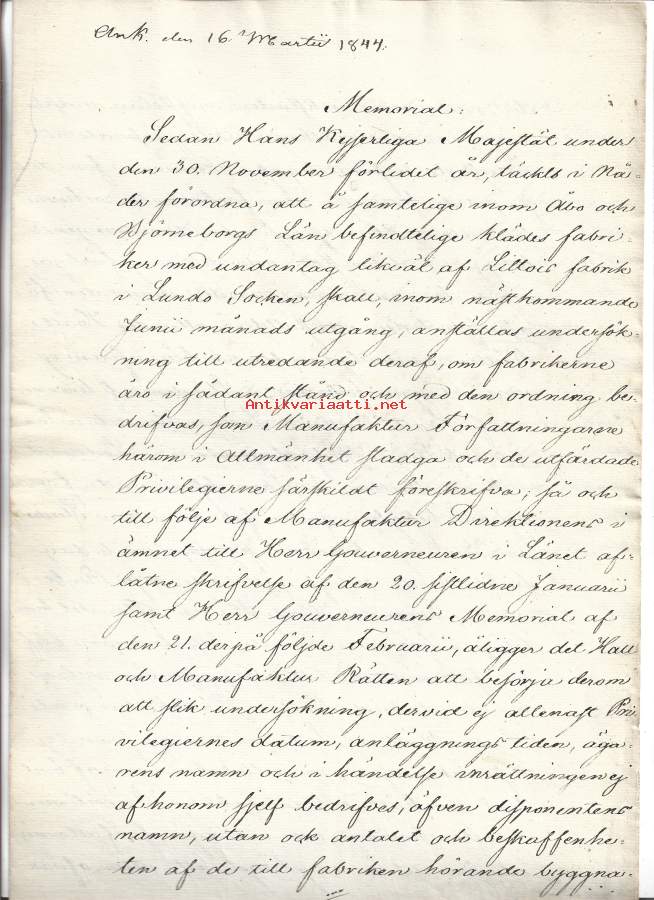 Ank. den 16. Martii 1844.
Memorial:
Sedan Hans Kejserliga Majestät under
den 30. November förlidet år, täckts i Nå-
der förordna, att å samtelige inom Åbo och
Björneborgs Län befindtelige klädes fabri-
ker med undantag likväl af Littois fabrik
i Lundo Socken, skall, inom nästkommande
Junii månads utgång, anställas undersök-
ning till utredande deraf, om fabrikerne
äro i sådant stånd och med den ordning be-
Antikvariaatti.net
drifvas, som Manufaktur Författningarne
härom i Allmänhet stadga och de utfärdade
Privilegierne särskildt föreskrifva; så och
till följe af Manufaktur Direktionens i
ämnet till Herr Gouverneuren i Länet af-
låtne skrifvelse af den 20. sistlidne Januarii
samt Herr Gouverneurens Memorial af
den 21. derpå följde Februarii, åligger det Hall
och Manufaktur Rätten att besörja derom
att slik undersökning, dervid ej allenast Pri-
vilegiernes datum, anläggnings tiden, äga-
rens namn och i händelse inrättningen ej
af honom sjelf bedrifves, äfven disponentens
namn, utan ock antalet och beskaffenhe-
ten af de till fabriken hörande byggna-